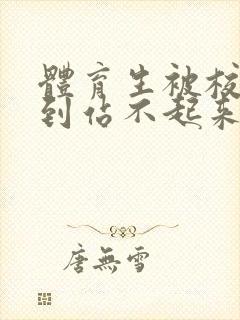 體育生被校
到佔不起來
唐無雪